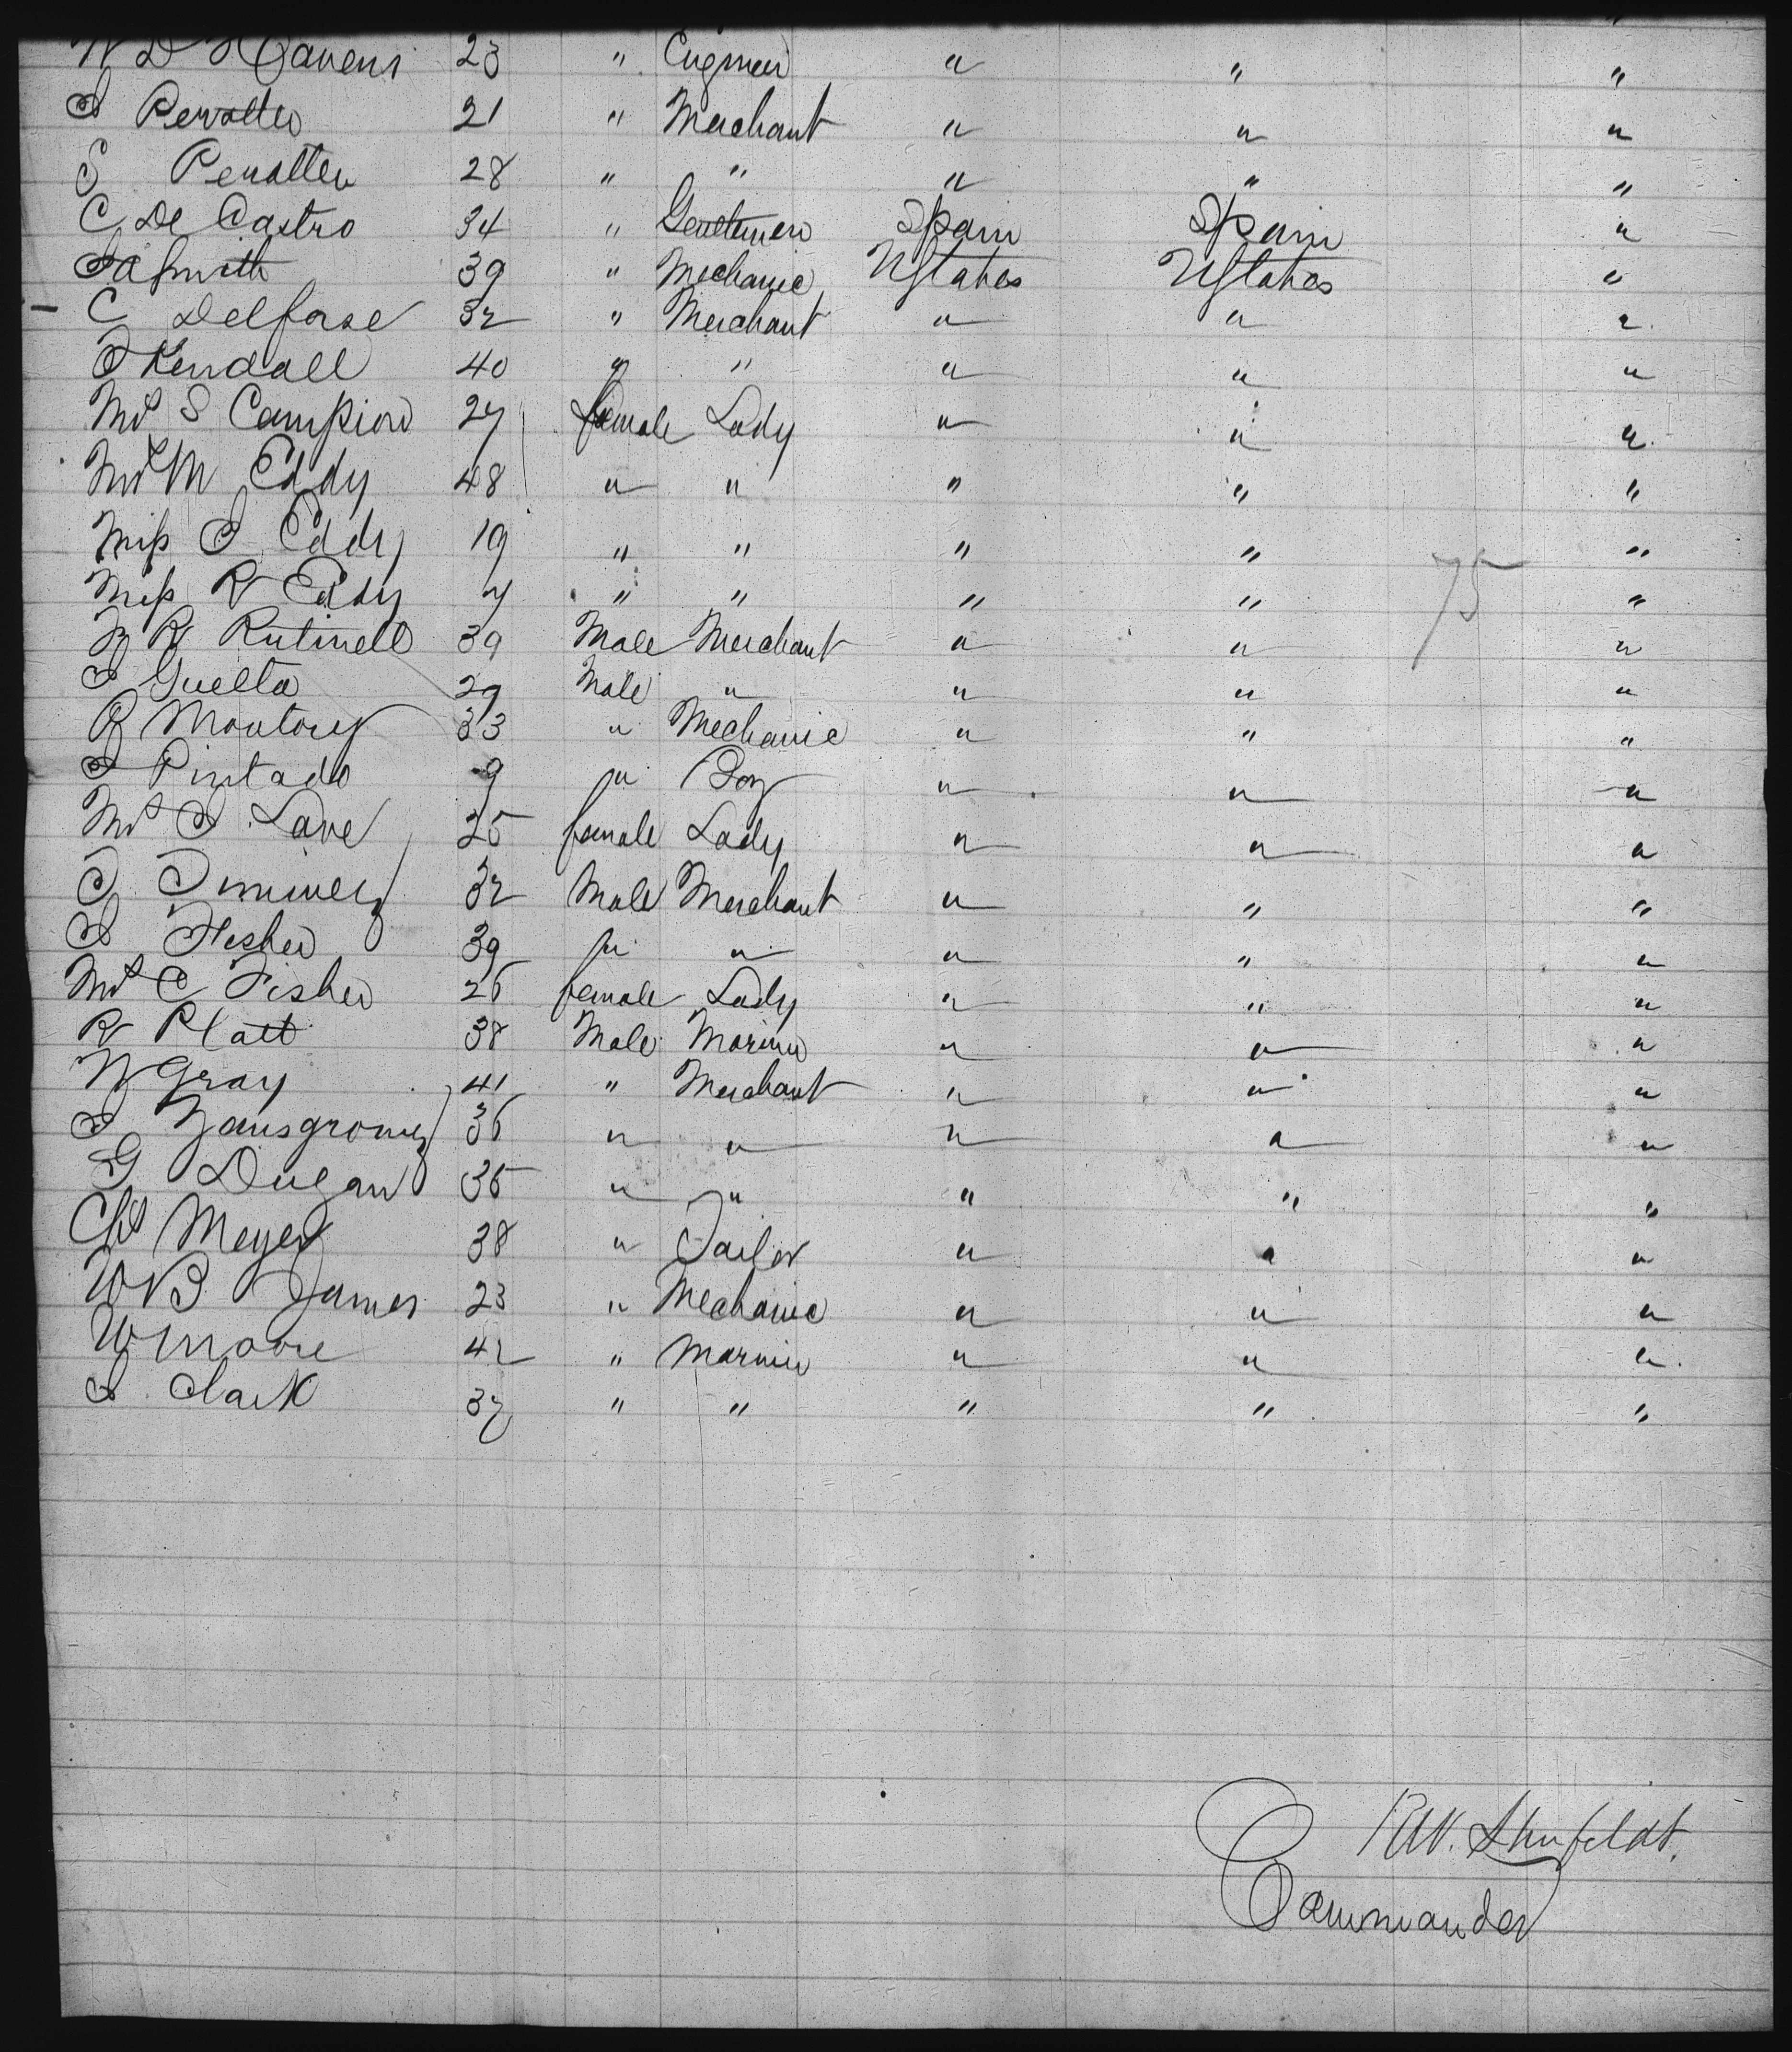 W D Havens 23 " Engineer " " "
I Peralter 21 " Merchant " " "
S Peralter 28 " " " " "
C De Castro 34 " Gentlemen Spain Spain "
I A Smith 39 " Mechanic UStates UStates "
- C Delfose 32 " Merchant " " "
I Kendall 40 " " " " "
Mrs S Campion 27 female Lady " " "
Mrs M Eddy 48 " " " " "
Miss I Eddy 19 " " " " "
Miss R Eddy 7 " " " " "
R Rutinell 39 Male Merchant " " "
I Guelta 29 Male " " " "
R Montory 33 " Mechanic " " "
I Pintado 9 " Boy " " "
Mrs I Lane 25 female Lady " " "
32 Male Merchant " " "
I Fisher 39 " " " " "
Mrs C Fisher 26 female Lady " " "
R Platt 38 Male Mariner " " "
W Gray 41 " Merchant " " "
I 36 " " " " "
G Dugan 35 " " " " "
Chs Meyer 38 " Tailor " " "
W B James 23 " Mechanic " " "
W Moore 42 " Mariner " " "
I Clark 37 " " " " "
75
R.W. Shufeldt.
Commander